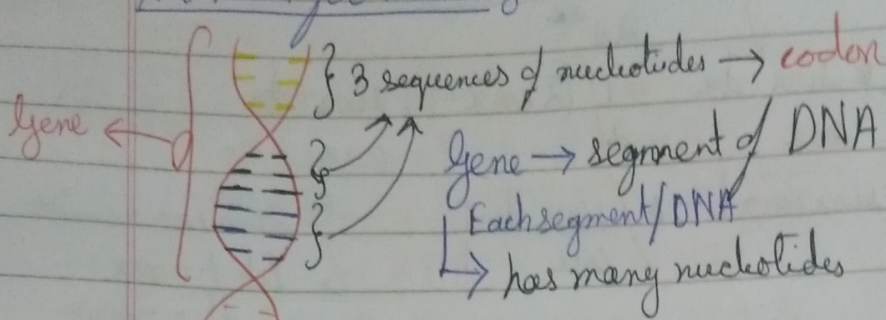 3 sequences of nucleotides → codon
Gene ←
Gene → segment of DNA
Each segment/DNA
↳ has many nucleotides